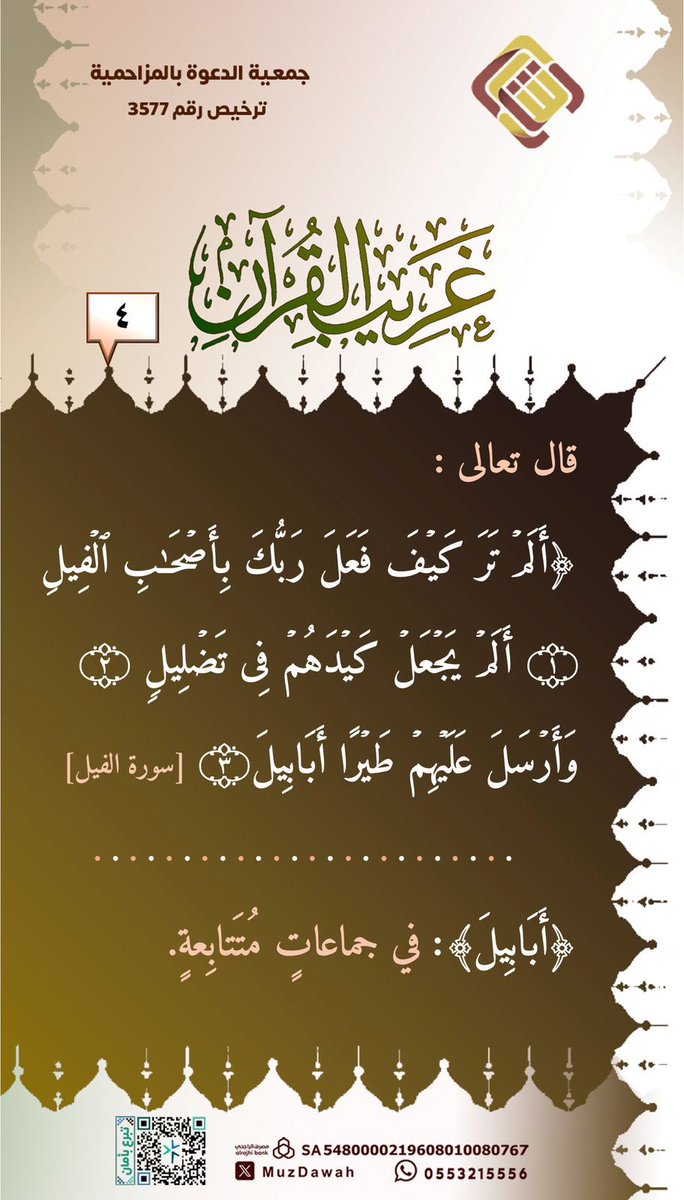 جمعية الدعوة بالمزاحمية
ترخيص رقم 3577
غَرِيبُ الْقُرْآنِ
٤
قال تعالى :
﴿أَلَمۡ تَرَ كَيۡفَ فَعَلَ رَبُّكَ بِأَصۡحَٰبِ ٱلۡفِيلِ
۝١ أَلَمۡ يَجۡعَلۡ كَيۡدَهُمۡ فِي تَضۡلِيلٖ ۝٢
وَأَرۡسَلَ عَلَيۡهِمۡ طَيۡرًا أَبَابِيلَ ۝٣ [سورة الفيل]
﴿أَبَابِيلَ﴾: في جماعاتٍ مُتَتابِعةٍ.
تبرع بأمان
مصرف الراجحي
alrajhi bank
SA5480000219608010080767
MuzDawah
0553215556